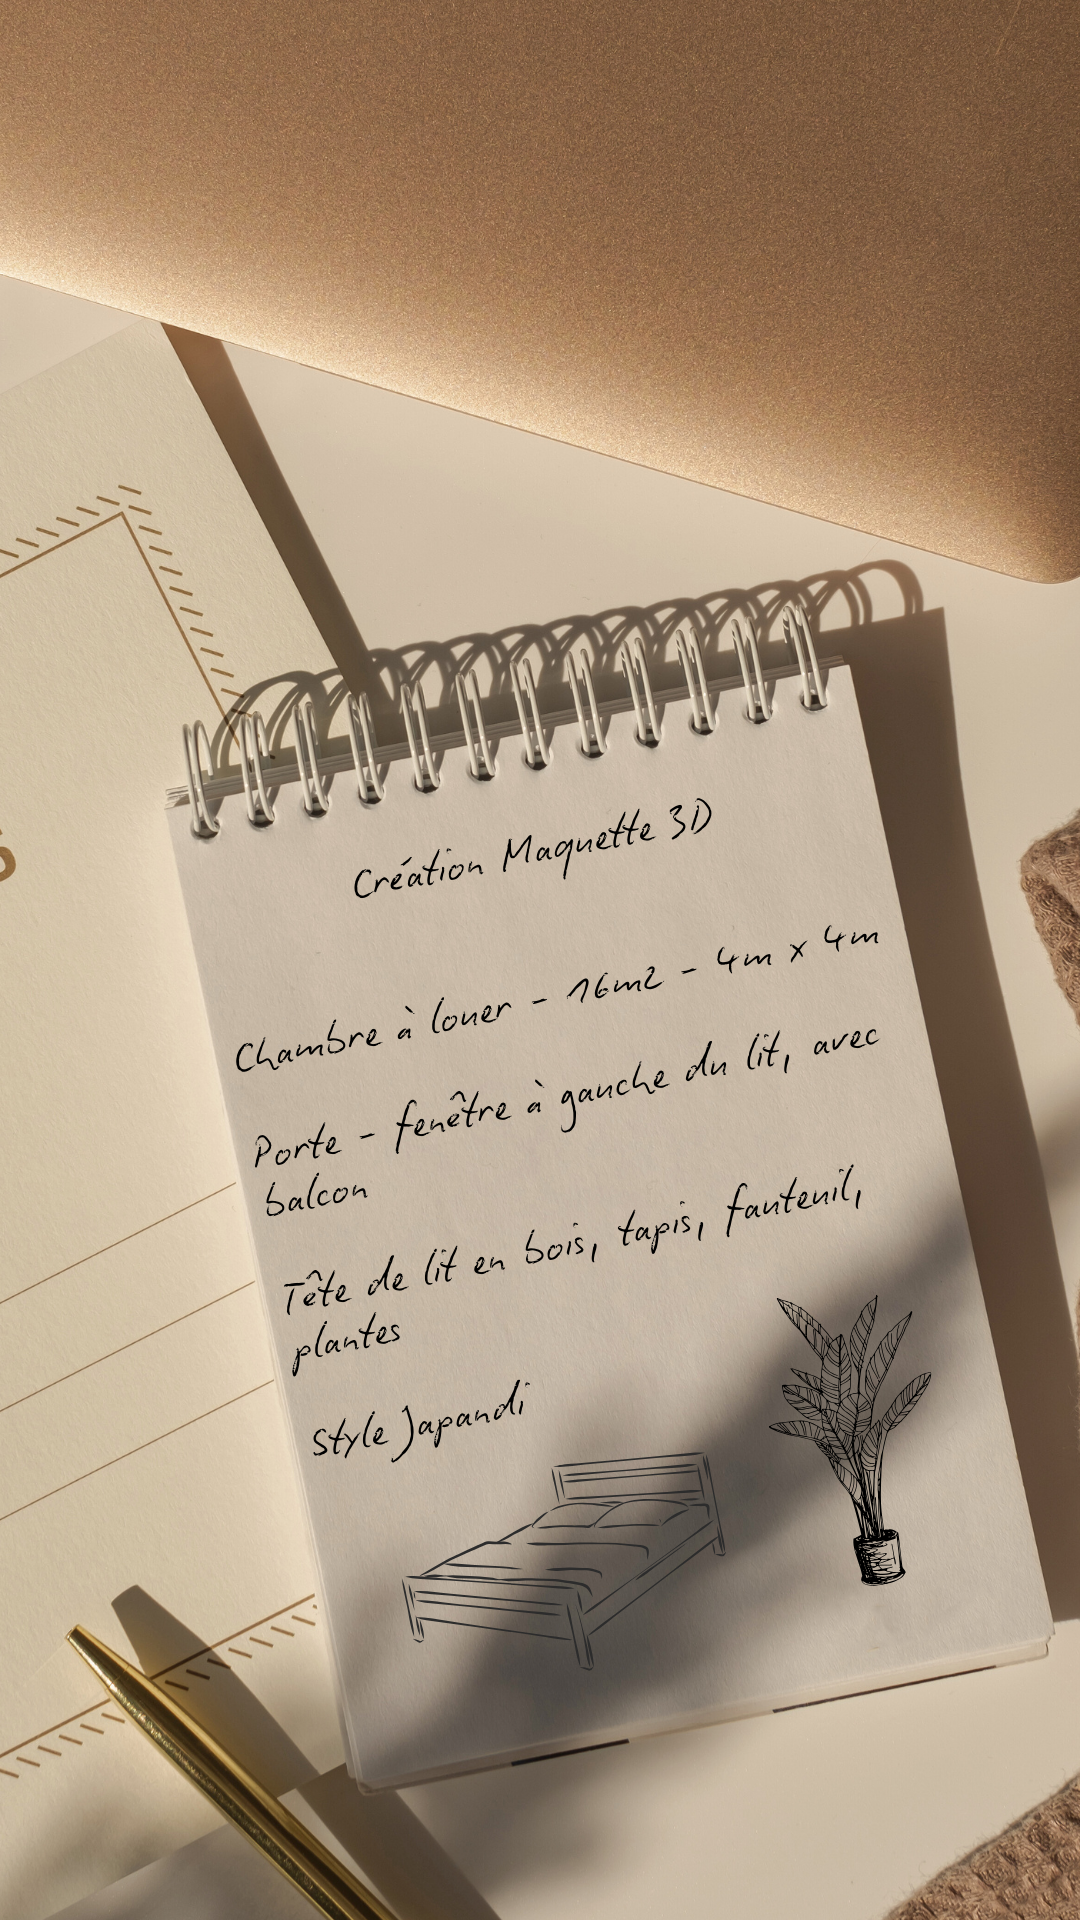 Création Maquette 3D
Chambre à louer - 16m2 - 4m x 4m
Porte - fenêtre à gauche du lit, avec
balcon
Tête de lit en bois, tapis, fauteuil,
plantes
Style Japandi